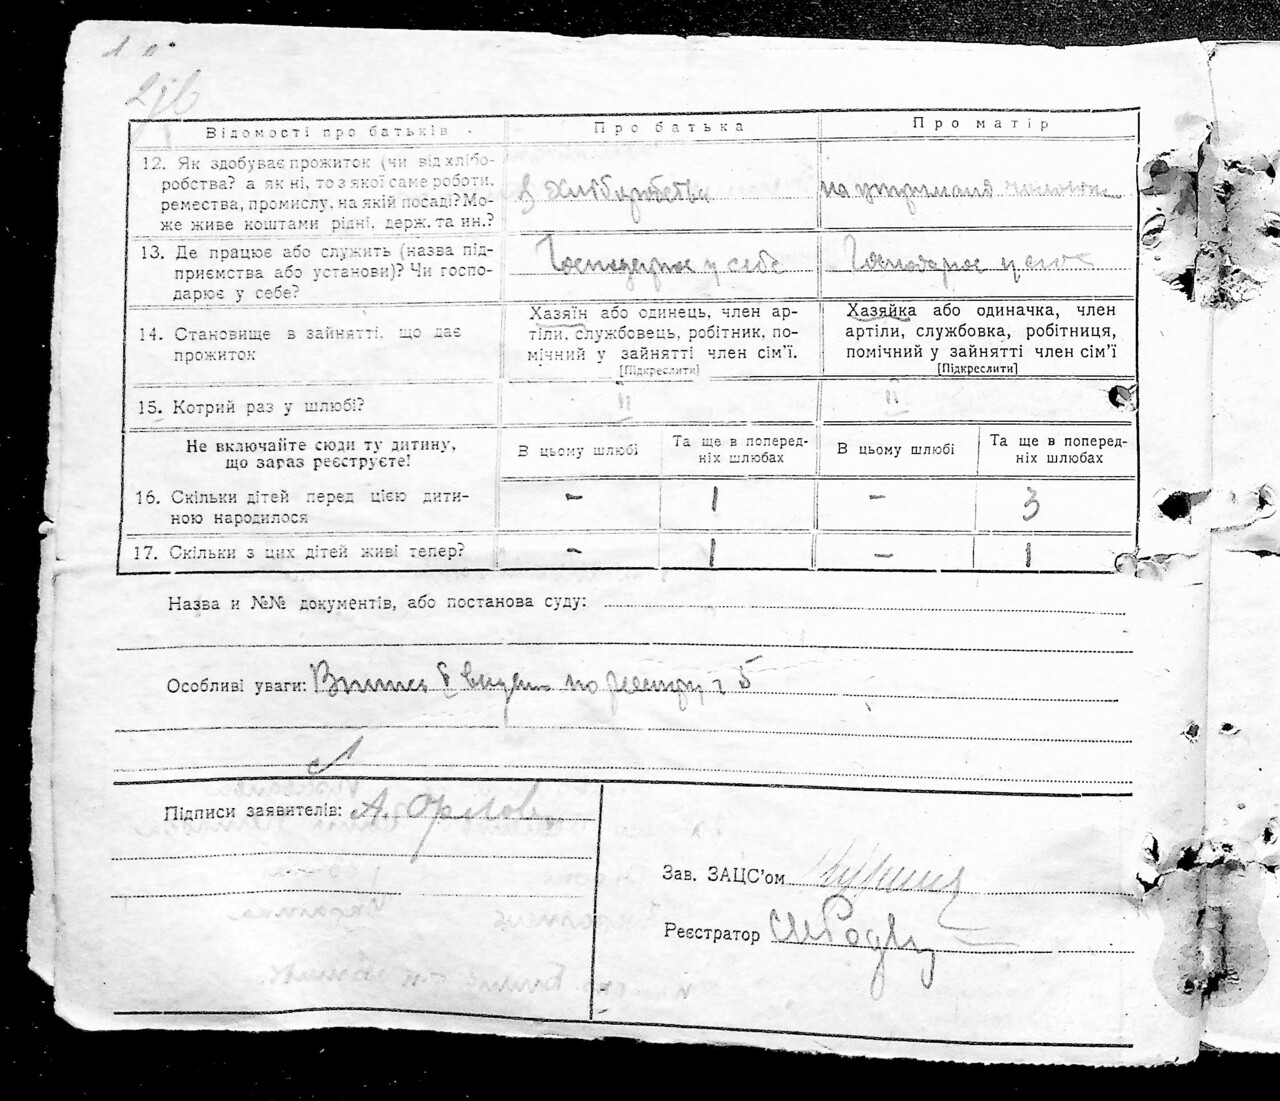 Відомості про батьків.
Про батька
Про матір
12. Як здобуває прожиток (чи від хлібо-
робства? а як ні, то з якої саме роботи,
ремества, промислу, на якій посаді? Мо-
же живе коштами рідні, держ. та ин.?
з хліборобства
на утриманні чоловіка
13. Де працює або служить (назва під-
приємства або установи)? Чи госпо-
дарює у себе?
Господарює у себе
Господарює у себе
14. Становище в зайнятті, що дає
прожиток
Хазяїн або одинець, член ар-
тіли, службовець, робітник, по-
мічний у зайнятті член сім'ї.
[Підкреслити]
Хазяйка або одиначка, член
артіли, службовка, робітниця,
помічний у зайнятті член сім'ї
[Підкреслити]
15. Котрий раз у шлюбі?
II
II
Не включайте сюди ту дитину,
що зараз реєструєте!
В цьому шлюбі
Та ще в поперед-
ніх шлюбах
В цьому шлюбі
Та ще в поперед-
ніх шлюбах
16. Скільки дітей перед цією дити-
ною народилося
-
1
-
3
17. Скільки з цих дітей живі тепер?
-
1
-
1
Назва и №№ документів, або постанова суду:
Особливі уваги: по реєстру 5
Підписи заявителів: А. Орлов
Зав. ЗАЦС'ом
Реєстратор